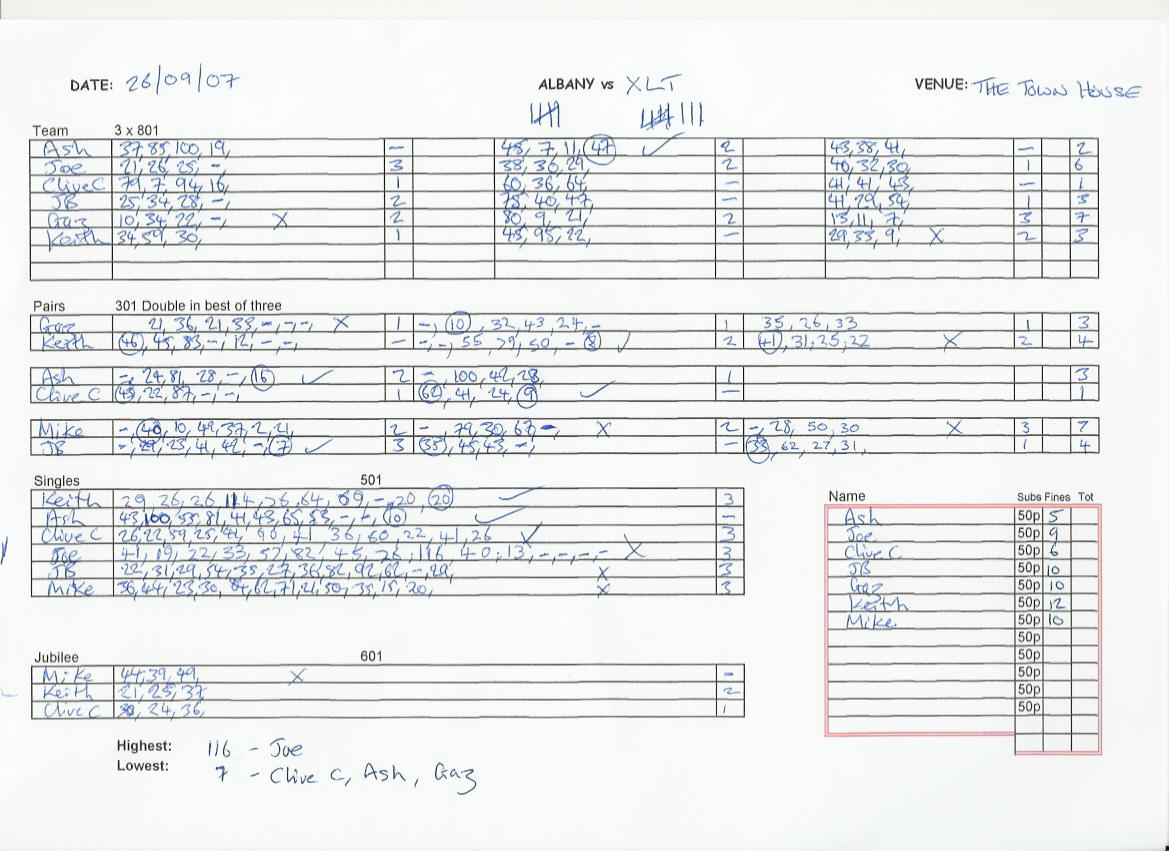 DATE: 26/09/07 ALBANY vs XLT VENUE: THE TOWN HOUSE
Team 3 x 801
Ash 37, 85, 100, 19, — 48, 7, 11, 47 ✓ 2 43, 38, 41, — 2
Joe 21, 26, 25, –, 3 38, 36, 29, 2 40, 32, 30, 1 6
Clive C 79, 7, 94, 16, 1 60, 36, 64, — 41, 41, 43, — 1
JB 25, 34, 28, –, 2 75, 40, 47, — 41, 29, 54, 1 3
Gaz 10, 34, 22, –, X 2 80, 9, 21, 2 13, 11, 7, 3 7
Keith 34, 59, 30, 1 45, 95, 22, — 29, 33, 9, X 2 3
Pairs 301 Double in best of three
Gaz 21, 36, 21, 33, –, –, –, X 1 –, 10, 32, 43, 24, – 1 35, 26, 33 1 3
Keith 46, 45, 83, –, 12, –, –, — –, –, 55, 79, 50, – 8 ✓ 2 41, 31, 25, 22 X 2 4
Ash –, 24, 81, 28, –, 16 ✓ 2 –, 100, 42, 28, 1 3
Clive C 43, 22, 87, –, –, 1 62, 41, 24, 9 ✓ — 1
Mike –, 40, 10, 49, 37, 2, 21, 2 –, 79, 30, 67, – X 2 –, 28, 50, 30 X 3 7
JB –, 23, 41, 42, –, 7 ✓ 3 38, 45, 43, –, — 33, 62, 27, 31, 1 4
Singles 501
Keith 29, 26, 26, 114, 26, 64, 69, –, 20, 20 ✓ 3
Ash 43, 100, 55, 81, 41, 43, 65, 53, –, 10 ✓ —
Clive C 26, 22, 59, 25, 41, 90, 41, 36, 60, 22, 41, 26 ✓ 3
Joe 41, 19, 22, 33, 57, 82, 45, 26, 116, 40, 13, –, –, –, – X 3
JB 22, 31, 29, 54, 35, 27, 36, 82, 92, 62, –, 29, X 3
Mike 36, 44, 23, 30, 84, 62, 71, 21, 50, 35, 15, 20, X 3
Name Subs Fines Tot
Ash 50p 5
Joe 50p 9
Clive C 50p 6
JB 50p 10
Gaz 50p 10
Keith 50p 12
Mike 50p 10
50p
50p
50p
50p
50p
Jubilee 601
Mike 44, 39, 49, X —
Keith 21, 25, 37 2
Clive C 30, 24, 36, 1
Highest: 116 - Joe
Lowest: 7 - Clive C, Ash, Gaz